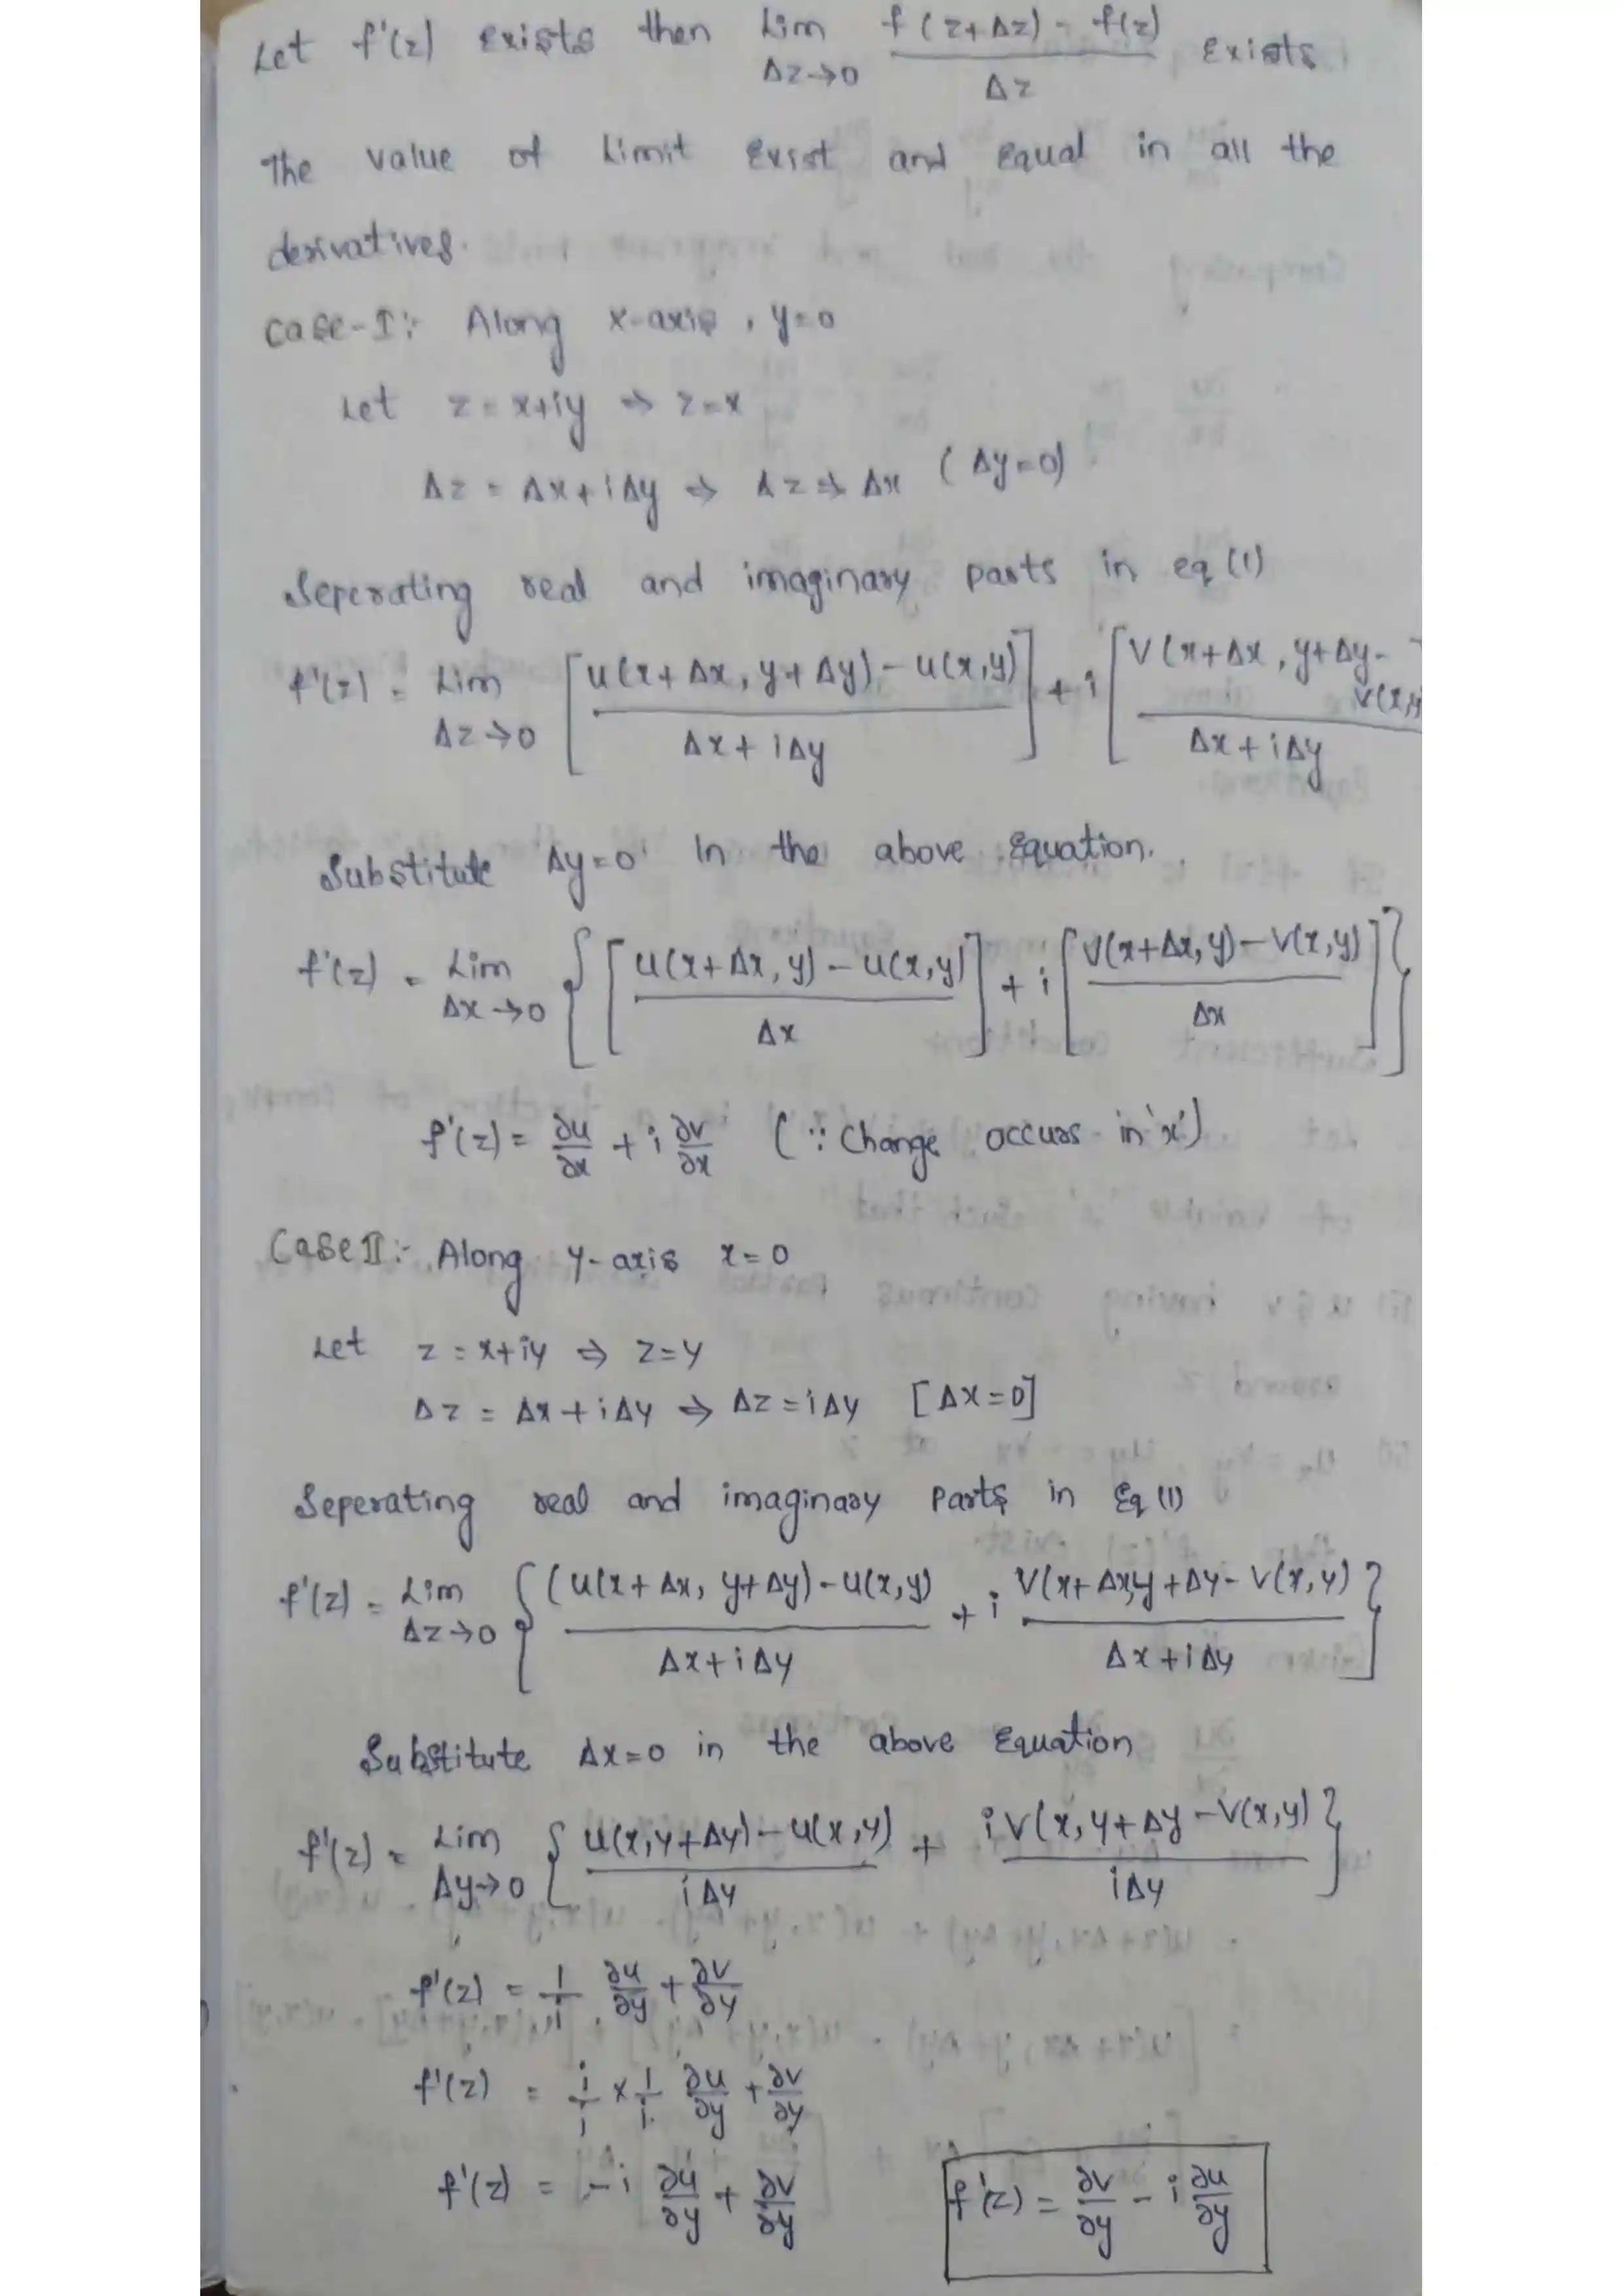 Let f'(z) exists then Lim Δz→0 f(z+Δz) - f(z) / Δz exists
The value of Limit Exist and equal in all the
derivatives.
Case-I:- Along x-axis, y=0
Let z = x+iy ⇒ z=x
Δz = Δx+iΔy ⇒ Δz ⇒ Δx (Δy=0)
Seperating real and imaginary parts in eq (1)
f'(z) = Lim Δz→0 [u(x+Δx, y+Δy) - u(x,y) / Δx+iΔy] + i [V(x+Δx, y+Δy - V(x,y / Δx+iΔy
Substitute Δy=0 in the above Equation.
f'(z) = Lim Δx→0 {[u(x+Δx, y) - u(x,y) / Δx] + i [V(x+Δx, y) - V(x,y) / Δx]}
f'(z) = ∂u/∂x + i ∂v/∂x (∵ Change occurs in 'x')
Case II:- Along y-axis x=0
Let z = x+iy ⇒ z=y
Δz = Δx+iΔy ⇒ Δz = iΔy [Δx=0]
Seperating real and imaginary Parts in Eq (1)
f'(z) = Lim Δz→0 {(u(x+Δx, y+Δy) - u(x,y) / Δx+iΔy + i V(x+Δx,y+Δy - V(x,y) / Δx+iΔy}
Substitute Δx=0 in the above Equation
f'(z) = Lim Δy→0 {u(x,y+Δy) - u(x,y) / iΔy + i V(x,y+Δy - V(x,y) / iΔy}
f'(z) = 1/i . ∂u/∂y + ∂v/∂y
f'(z) = i/i × 1/i ∂u/∂y + ∂v/∂y
f'(z) = -i ∂u/∂y + ∂v/∂y
f'(z) = ∂v/∂y - i ∂u/∂y